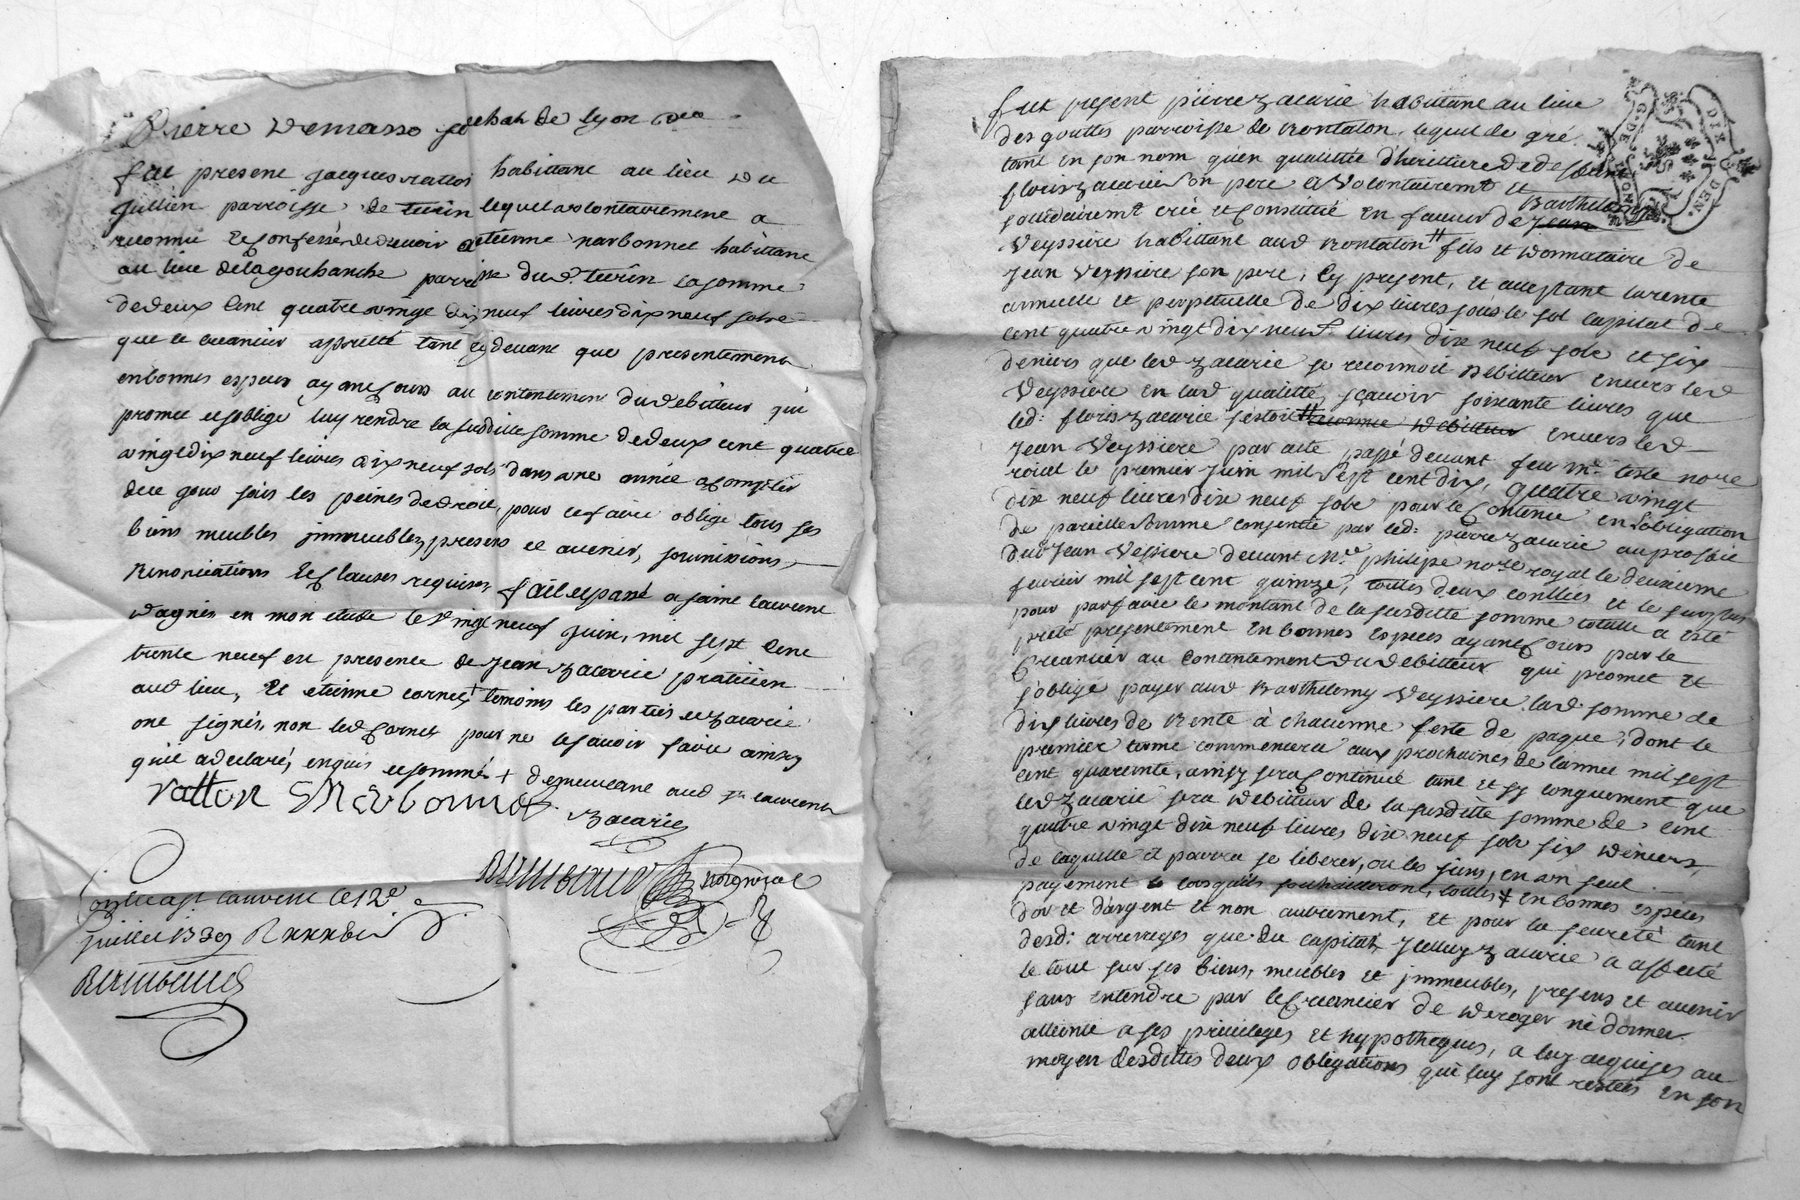 Pierre Demasso senechal de Lyon
fut present jacques ratton habittant au lieu du
Jullien parroisse de turin lequel volontairement a
reconnu et confessé devoir a etienne narbonnet habittant
au lieu de la gouhanche parroisse dud. turin la somme
de deux cent quatre vingt dix neuf livres dix neuf sols
que le creancier apretté tant cy devant que presentement
en bonnes especes ayant cours au contentement du debitteur qui
promet et soblige luy rendre la susditte somme de deux cent quatre
vingt dix neuf livres dix neuf sols dans une année a compter
de ce jour sous les peines de droit, pour ce faire oblige tous ses
biens meubles immeubles, presens et avenir, soumissions,
renonciations et clauses requises, fait et passé a saint laurent
dagnis en mon etude le vingt neuf juin, mil sept cent
trente neuf en presence de jean zacarie praticien
aud lieu, et etienne cornet + temoins les parties et zacarie
ont signés, non led cornet pour ne le scavoir faire ainsy
qu'il a declaré, enquis et sommé + demeurant aud st laurent
ratton E Narbonnet
zacarie
original
st laurent ce 12e
juillet 1739
fut present pierre zacarie habittant au lieu
des gouttes parroisse de rontalon, lequel de gré
tant en son nom qu'en qualitté d'heritier de defunt
floris zacarie son pere a volontairemt et
solidairemt creé et constitué en faveur de jean Barthelemy
Veyssiere habittant aud rontalon # fils et donnataire de
jean veyssiere son pere, cy present, et aceptant la rente
annuelle et perpetuelle de dix livres sous le sol capital de
cent quatre vingt dix neuf livres dix neuf sols et six
deniers que led zacarie se reconnoit debitteur envers led
Veyssiere en lad qualitté, sçavoir soixante livres que
led: floris zacarie sestoit # reconnue debitteur envers led
jean Veyssiere par acte passé devant feu me teste nore
roial le premier juin mil sept cent dix, quatre vingt
dix neuf livres dix neuf sols pour le contenu en l'obligation
de pareille somme consentie par led: pierre zacarie au profit
dud jean Vessiere devant Me philipe nore royal le deuxieme
fevrier mil sept cent quinze, toutes deux conttées et le surplus
pour parfaire le montant de la susditte somme totalle a esté
preté presentement en bonnes especes ayant cours par le
creancier au contentement du debitteur qui promet et
s'oblige payer aud Barthelemy Veyssiere lad somme de
dix livres de rente à chacunne feste de paque, dont le
premier terme commencera aux prochaines de lannee mil sept
cent quarente, ainsy sera continué tant et sy longuement que
led zacarie sera debitteur de la susditte somme de cent
quatre vingt dix neuf livres dix neuf sols six deniers,
de laquelle il pourra se liberer, ou les siens, en un seul
payement lorsqu'ils souhaitteront, toutes + en bonnes especes
d'or et d'argent et non autrement, et pour la seureté tant
desd: arrerages que du capital, jcelluy zacarie a affecté
le tout sur ses biens, meubles et jmmeubles, presens et avenir
sans entendre par le creancier de deroger ne donner
atteinte a ses privileges et hypotheques, a luy acquises au
moyen desdittes deux obligations qui luy sont restées en son